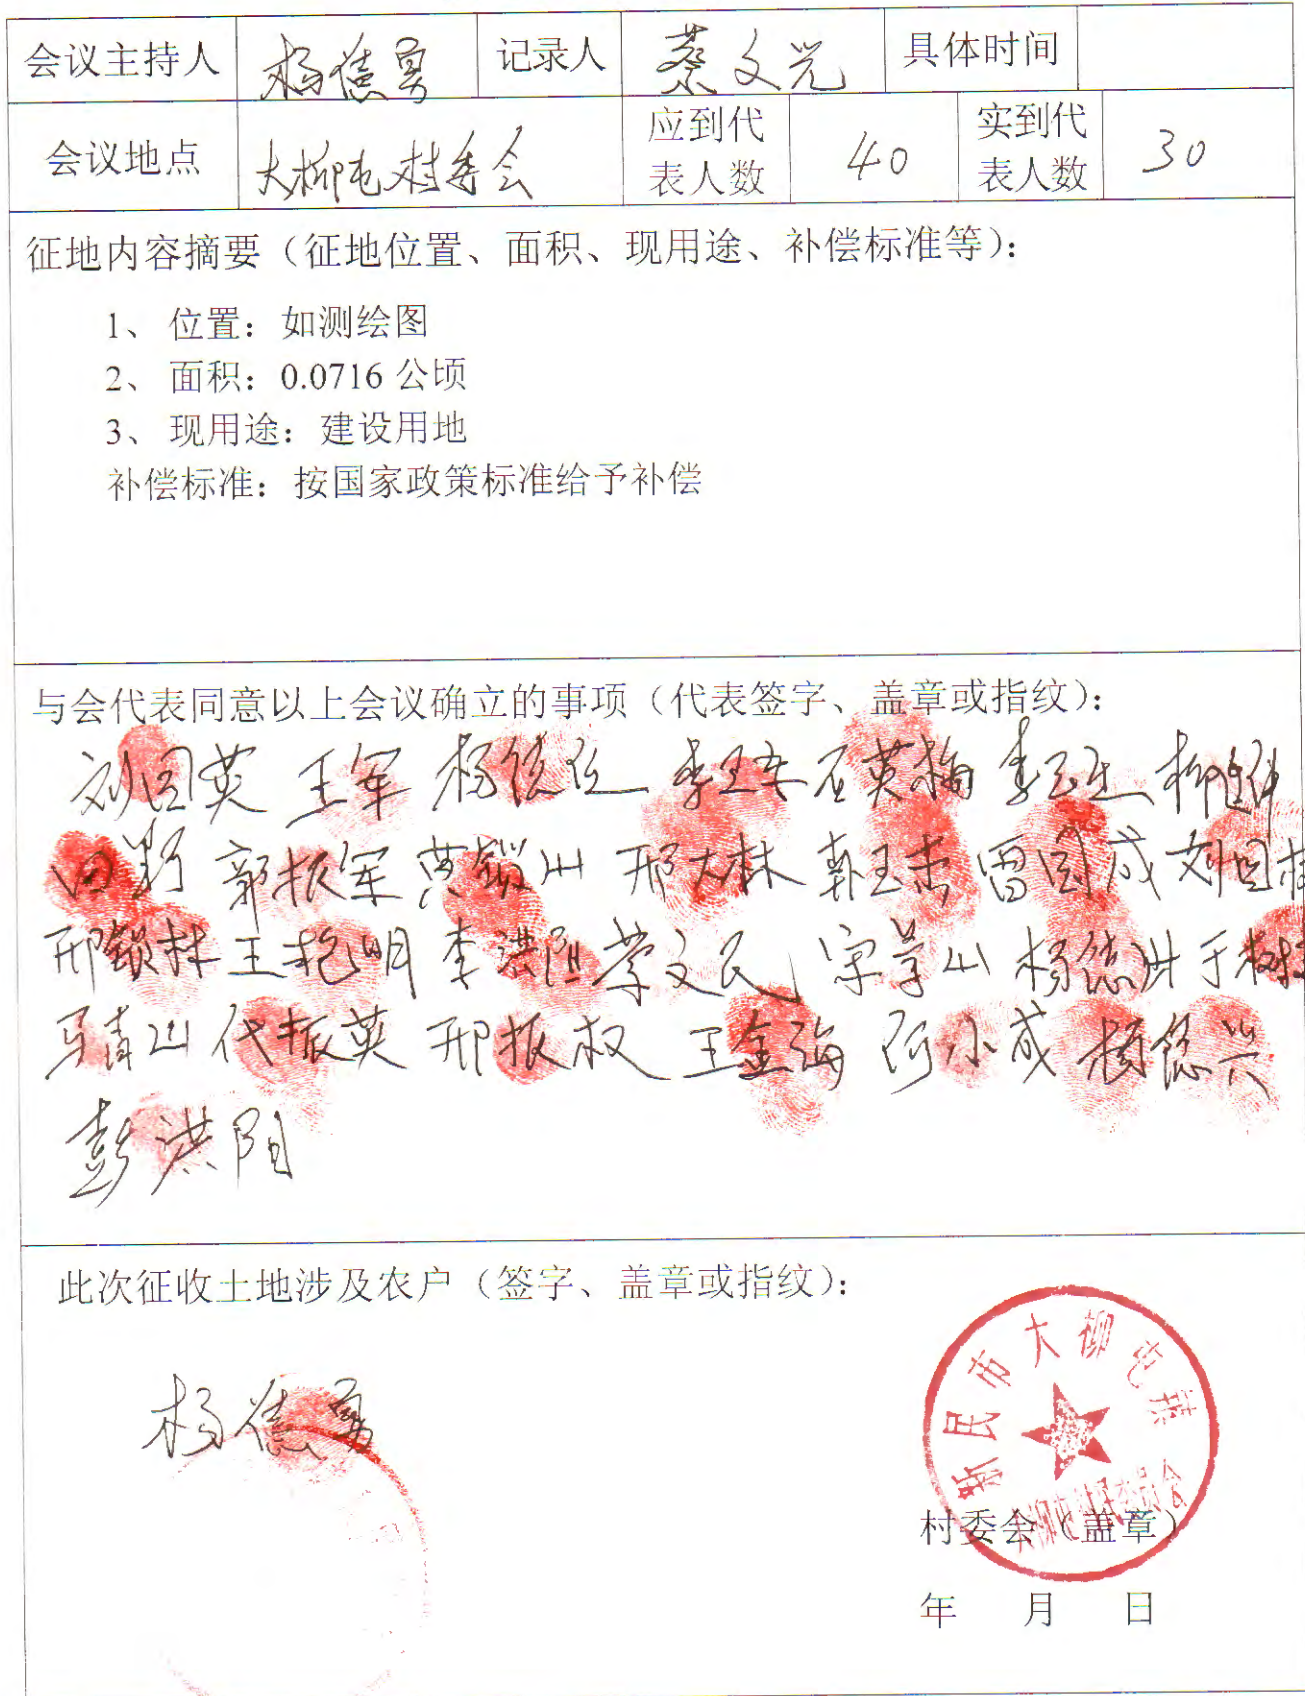 会议主持人 杨德勇 记录人 蔡文光 具体时间
会议地点 大柳屯村委会 应到代表人数 40 实到代表人数 30
征地内容摘要（征地位置、面积、现用途、补偿标准等）：
1、 位置：如测绘图
2、 面积：0.0716 公顷
3、 现用途：建设用地
补偿标准：按国家政策标准给予补偿
与会代表同意以上会议确立的事项（代表签字、盖章或指纹）：
刘国英 王军 石英梅
郭振军 邢大林 雷国成
邢银林 王艳明 杨德洪
马青山 代振英 邢振权 王金海 杨德兴
彭洪阳
此次征收土地涉及农户（签字、盖章或指纹）：
杨德勇
新民市大柳屯镇
村委会（盖章）
年 月 日